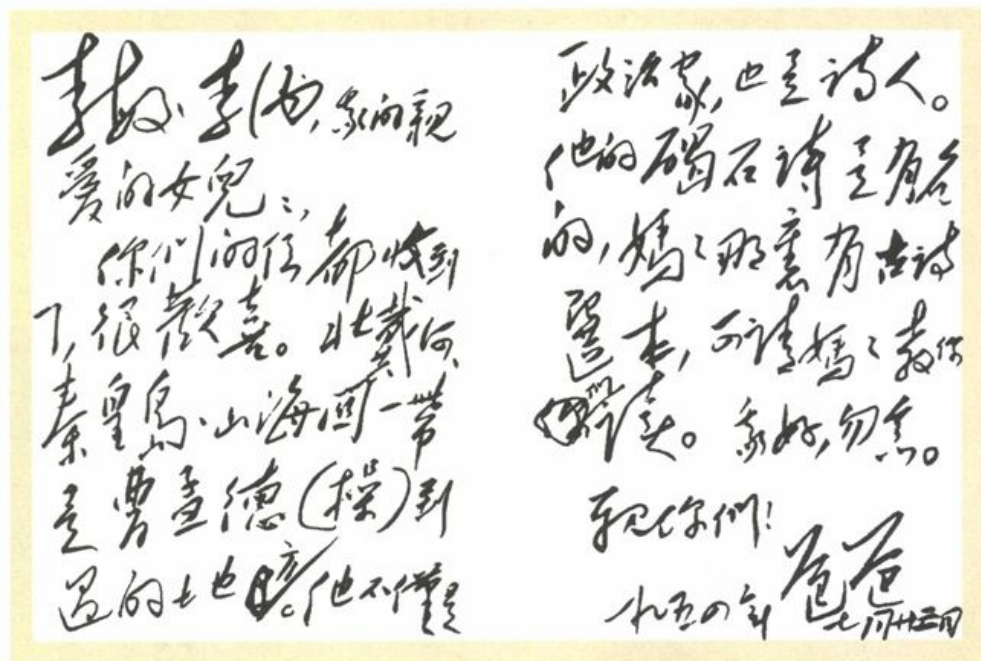 李敏、李讷，我的親
愛的女兒：
你们的信都收到
了，很歡喜。北戴河、
秦皇島、山海関一带
是曹孟德（操）到
過的地方。他不僅是
政治家，也是诗人。
他的碣石诗是有名
的，媽々那裏有古诗
選本，可请媽々教你
们读。我好，勿念。
親你们！
爸爸
一九五四年 七月廿三日